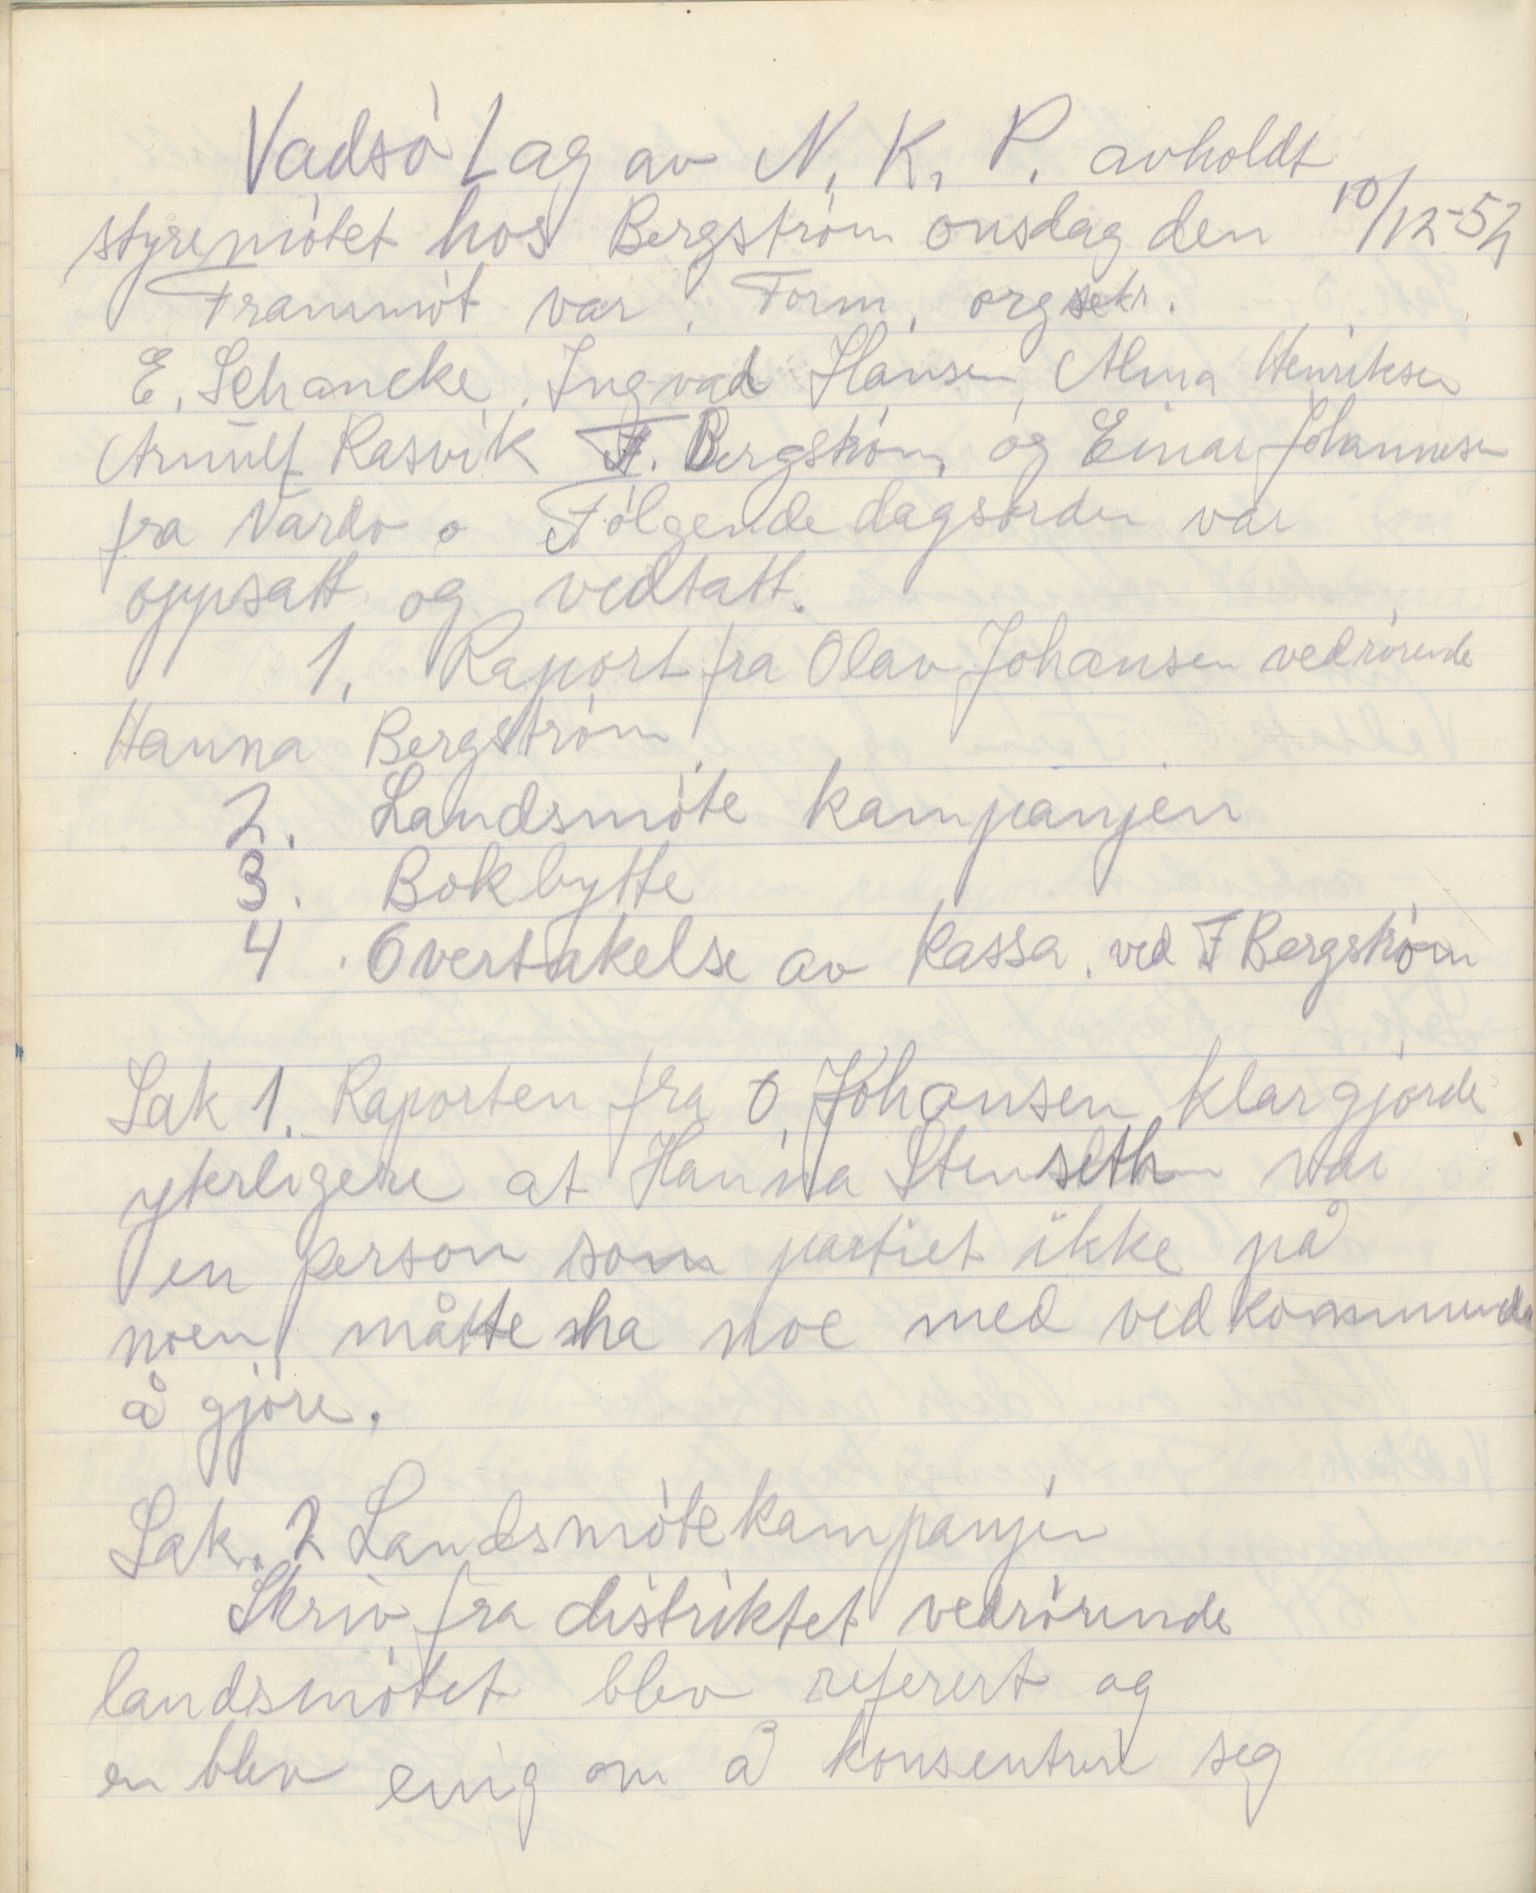 Vadsö Lag av N. K. P. avholdt
styremötet hos Bergström onsdag den 10/12-52
Frammöt var, Form, orgsekr.
E. Schancke, Ingvad Hansen, Alma Henriksen
Arnulf Rasvik F. Bergström, og Einar Johannesen
fra Vardö. Fölgende dagsorden var
oppsatt og vedtatt.
1. Raport fra Olav Johansen vedrörende
Hanna Bergström.
2. Landsmöte kampanjen
3. Bokbytte
4. Overtakelse av kassa, ved F Bergström
Sak 1. Raporten fra O, Johansen klargjorde
yterligere at Hanna Stenseth var
en person som partiet ikke på
noen måtte ha noe med vedkommende
å gjöre.
Sak. 2 Landsmötekampanjen
Skriv fra distriktet vedrörende
landsmötet blev referert og
en blev enig om å konsentrere seg